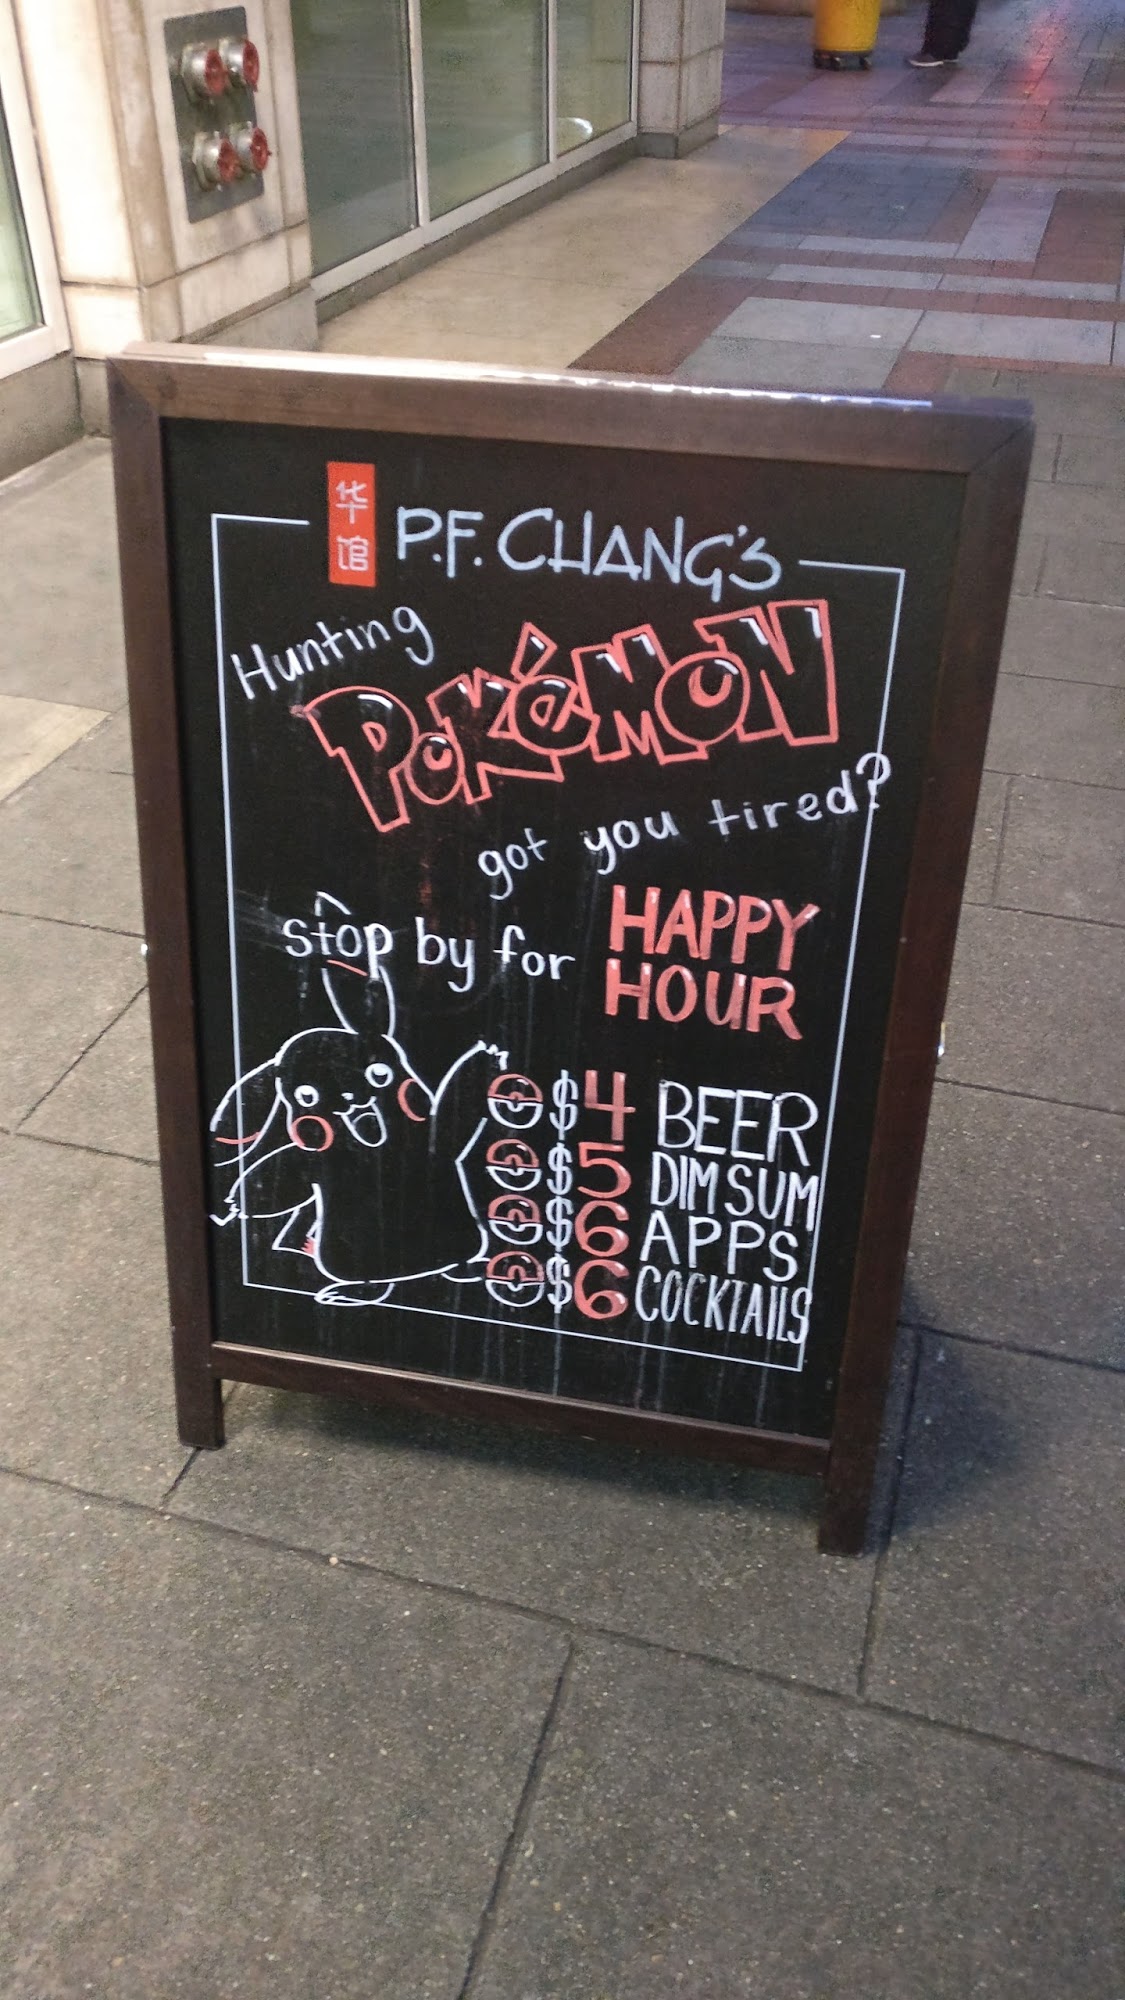 华馆 P.F. CHANG'S
Hunting
POKéMON
got you tired?
stop by for HAPPY
HOUR
$4 BEER
$5 DIM SUM
$6 APPS
$6 COCKTAILS